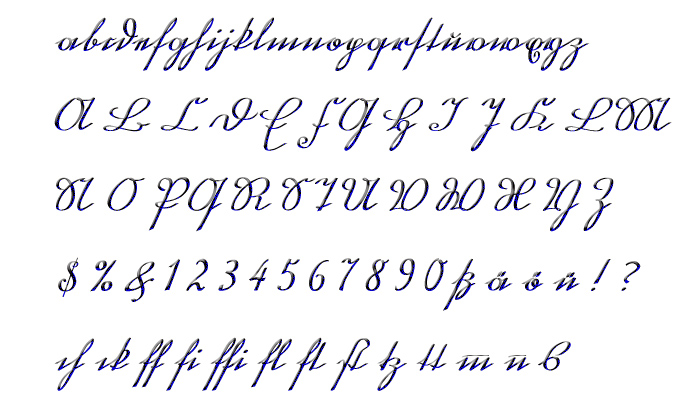 abcdefghijklmnopqrſtuvwxyz
A B C D E F G H I J K L M
N O P Q R S T U V W X Y Z
$ % & 1 2 3 4 5 6 7 8 9 0 ß ä ö ü ! ?
ch ck ff fi ffi fl ft ſt tz tt m̄ n̄ s